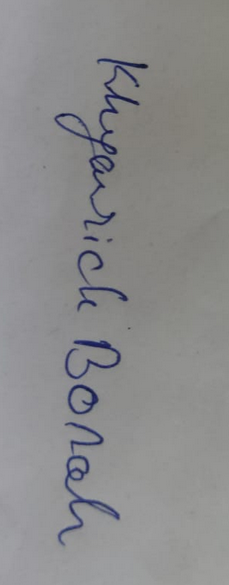 Khyanrich Borah